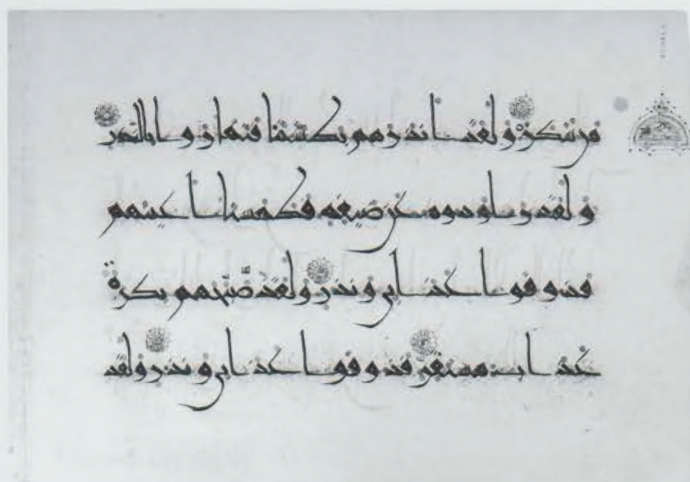 من شكر ولقد انذرهم بطشتنا فتماروا بالنذر
ولقد راودوه عن ضيفه فطمسنا اعينهم
فذوقوا عذابي ونذر ولقد صبحهم بكرة
عذاب مستقر فذوقوا عذابي ونذر ولقد